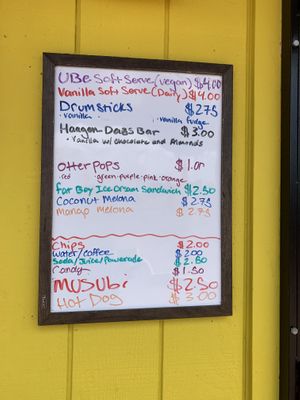 UBe Soft Serve (vegan) $4.00
Vanilla Soft Serve (Dairy) $4.00
Drumsticks $2.75
• vanilla • vanilla fudge
Haagen Dazs Bar $3.00
• vanilla w/ chocolate and Almonds
Otter Pops $1.00
• red • green • purple • pink • orange
Fat Boy Ice Cream Sandwich $2.50
Coconut Melona $2.75
Mango Melona $2.75
Chips $2.00
Water/Coffee $2.00
Soda/Juice/Powerade $2.50
Candy $1.50
MUSUBi $2.50
HOT DOG $3.00